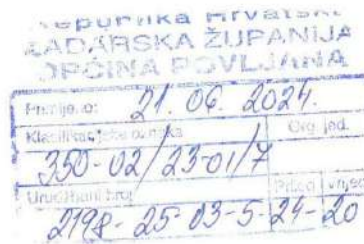 Republika Hrvatska
ZADARSKA ŽUPANIJA
OPĆINA POVLJANA
Primljeno: 21. 06. 2024.
Klasifikacijska oznaka Org. jed.
350-02/23-01/7
Urudžbeni broj Prilog Vrijed
2198-25-03-5-24-20